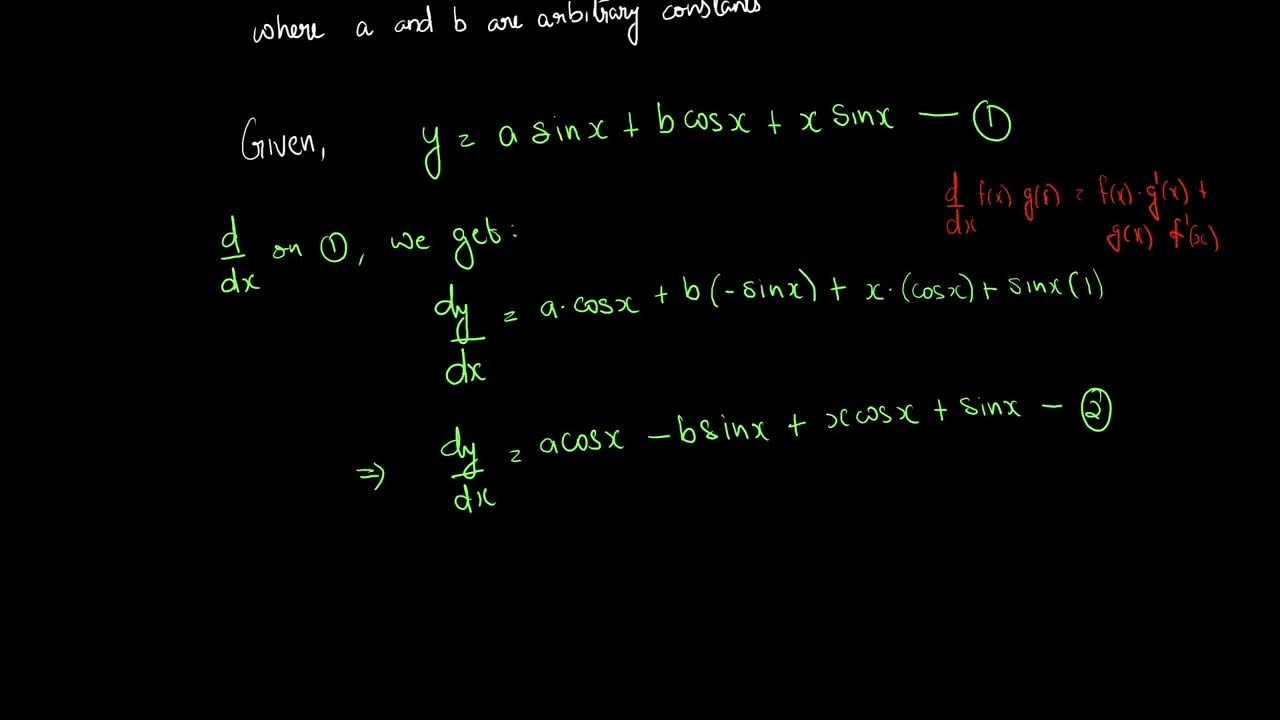 where a and b are arbitrary constants
Given, y = a sinx + b cosx + x sinx — ①
d/dx f(x) g(x) = f(x)·g'(x) +
g(x) f'(x)
d/dx on ①, we get:
dy/dx = a·cosx + b(-sinx) + x·(cosx) + sinx(1)
⇒ dy/dx = acosx - bsinx + xcosx + sinx - ②